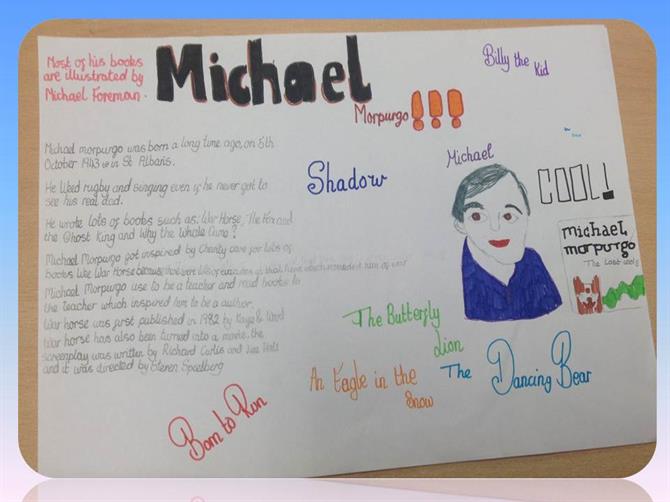 Most of his books
are illustrated by
Michael Foreman.
Michael
Morpurgo!!!
Billy the
Kid
Michael morpurgo was born a long time ago, on 5th
October 1943 in St Albans.
He liked rugby and singing even if he never got to
see his real dad.
He wrote lots of books such as: War Horse, The Fox and
the Ghost King and Why the Whale Came?
Michael Morpurgo got inspired by Charity care for lots of
books like War Horse
Michael Morpurgo use to be a teacher and read books to
the teacher which inspired him to be a author.
War horse was first published in 1982 by Kaye & Ward
War horse has also been turned into a movie, the
screenplay was written by Richard Curtis and Lee Hall
and it was directed by Steven Spielberg
Shadow
Michael
COOL!
michael
morpurgo
The Last wolf
The Butterfly
Lion
An Eagle in the
Snow
The Dancing Bear
Born to Run